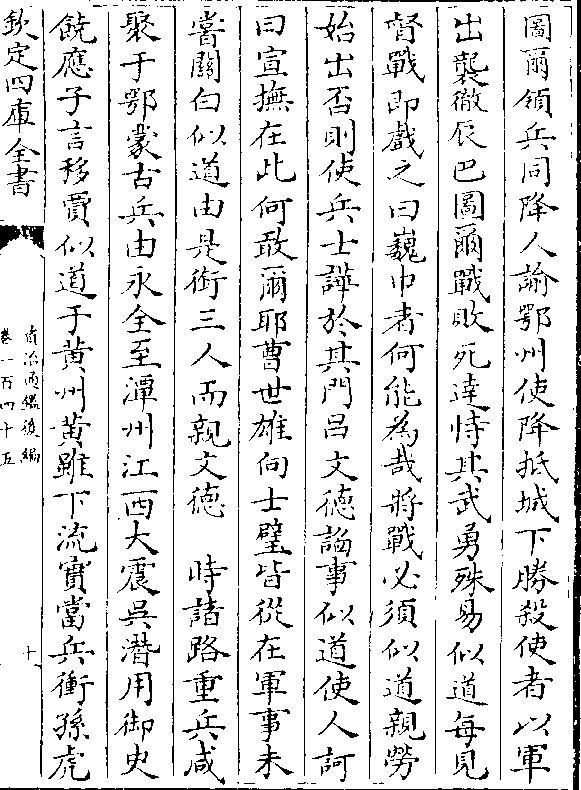 圖爾領兵同降人諭鄂州使降抵城下勝殺使者以軍
出襲徹辰巴圖爾戰敗死逹恃其武勇殊易似道每見
督戰即戲之曰巍巾者何能為哉將戰必須似道親勞
始出否則使兵士譁於其門呂文德諂事似道使人訶
曰宣撫在此何敢爾耶曹世雄向士璧皆從在軍事未
嘗關白似道由是銜三人而親文德　時諸路重兵咸
聚于鄂蒙古兵由永全至潭州江西大震吳潛用御史
饒應子言移賈似道于黄州黄雖下流實當兵衝孫虎
欽定四庫全書
資治通鑑後編
卷一百四十五
十